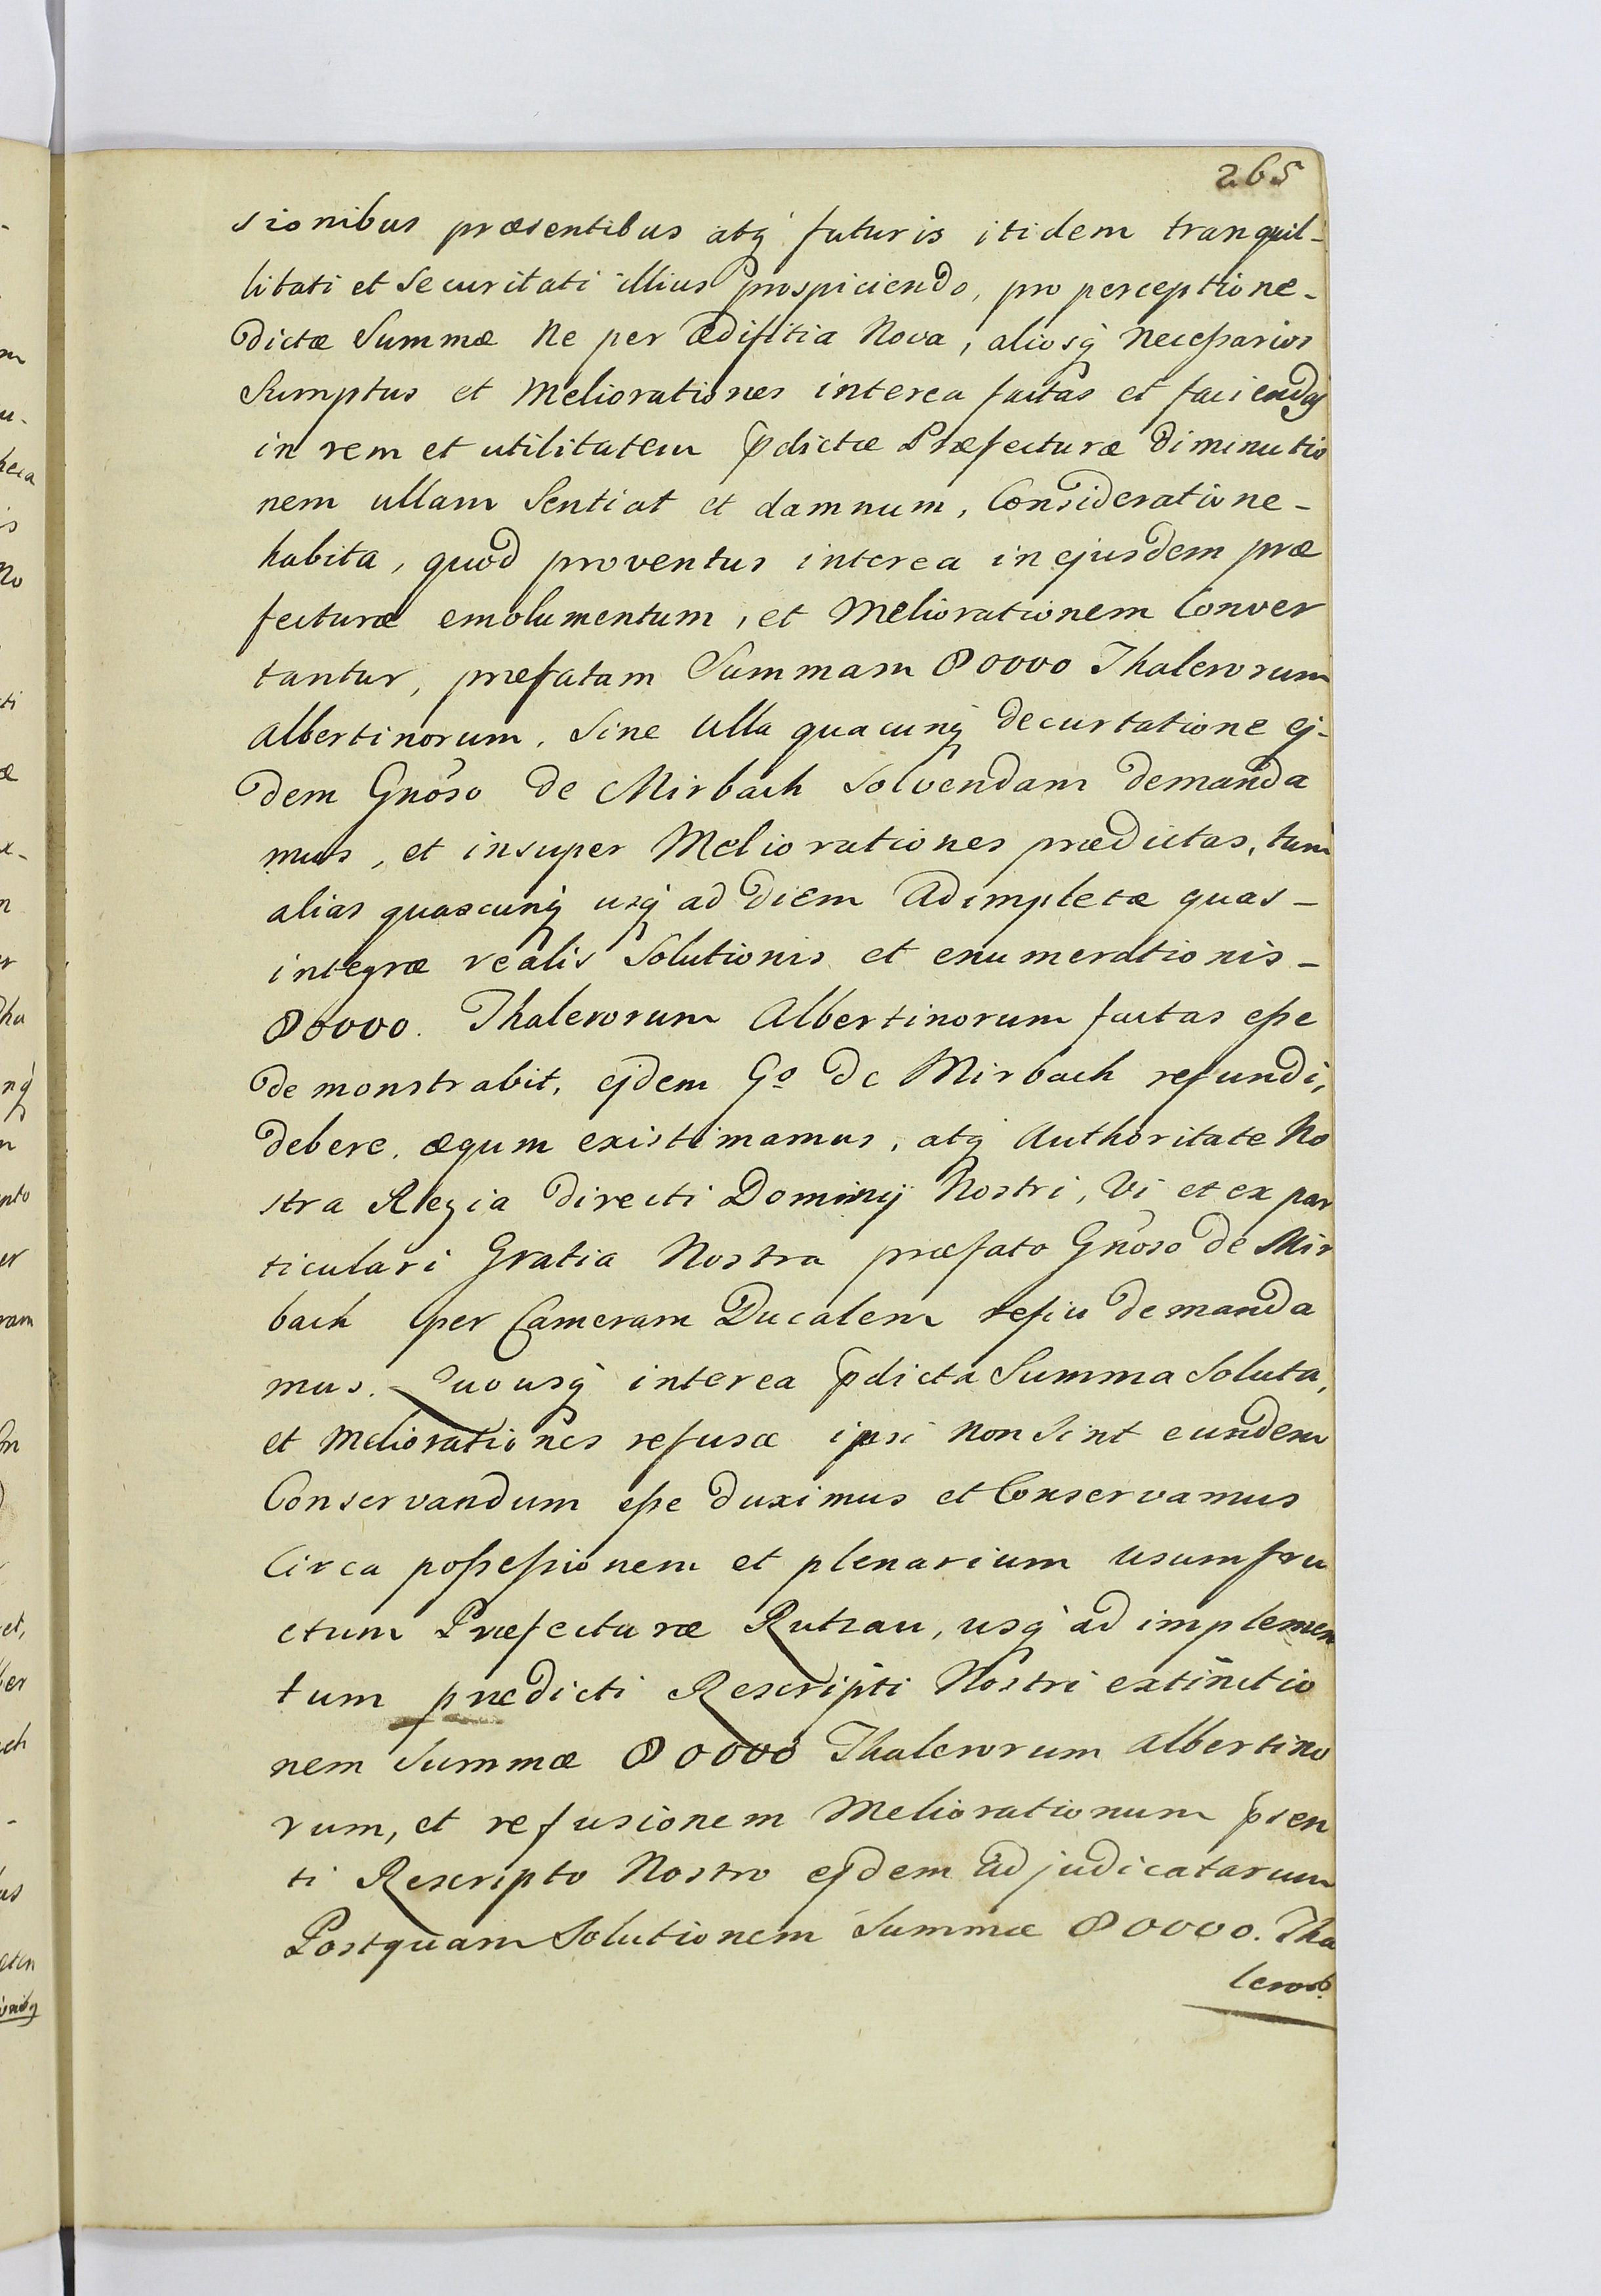 265
sionibus præsentibus atq́ futuris itidem tranquil-
litati et Securitati illius prospiciendo, pro perceptione-
dictæ Summæ Ne per ædifitia Nova, aliosq́ Neceßarios
Sumptus et Meliorationes interea factas et faciendas
in rem et utilitatem p̃dictæ Præfecturæ diminutio
nem ullam Sentiat et damnum, Consideratione-
habita, quod proventus interea in ejusdem præ
fecturæ emolumentum, et Meliorationem Conver
tantur, præfatam Summam 80000 Thalerorum
Albertinorum, Sine Ulla quacunq́ decurtatione ej-
dem Gnõso de Mirbach Solvendam demanda
mus, et insuper Meliorationes prædictas, tum
alias quascunq́ usq́ ad diem Adimpletæ quas-
integræ realis Solutionis et enumerationis-
80000. Thalerorum Albertinorum factas eße
demonstrabit, ejdem Go de Mirbach refundi,
debere, æqum existimamus, atq́ Authoritate No
stra Regia directi Dominij Nostri, Vi et ex par
ticulari Gratia Nostra præfato Gnõso de Mir
bach per Cameram Ducalem refici demanda
mus. Quousq́ interea p̃dicta Summa Soluta,
et Meliorationes refusæ ipsi Non Sint eundem
Conservandum eße duximus et Conservamus
Circa poßeßionem et plenarium Usumfru
ctum Præfecturæ Rutzau, usq́ ad implemen
tum prædicti Rescripti Nostri extinctio
nem Summæ 80000 Thalerorum Albertino
rum, et refusionem Meliorationum p̃sen
ti Rescripto Nostro ejdem Adjudicatarum
Postquam Solutionem Summæ 80000. Tha
lerorũ